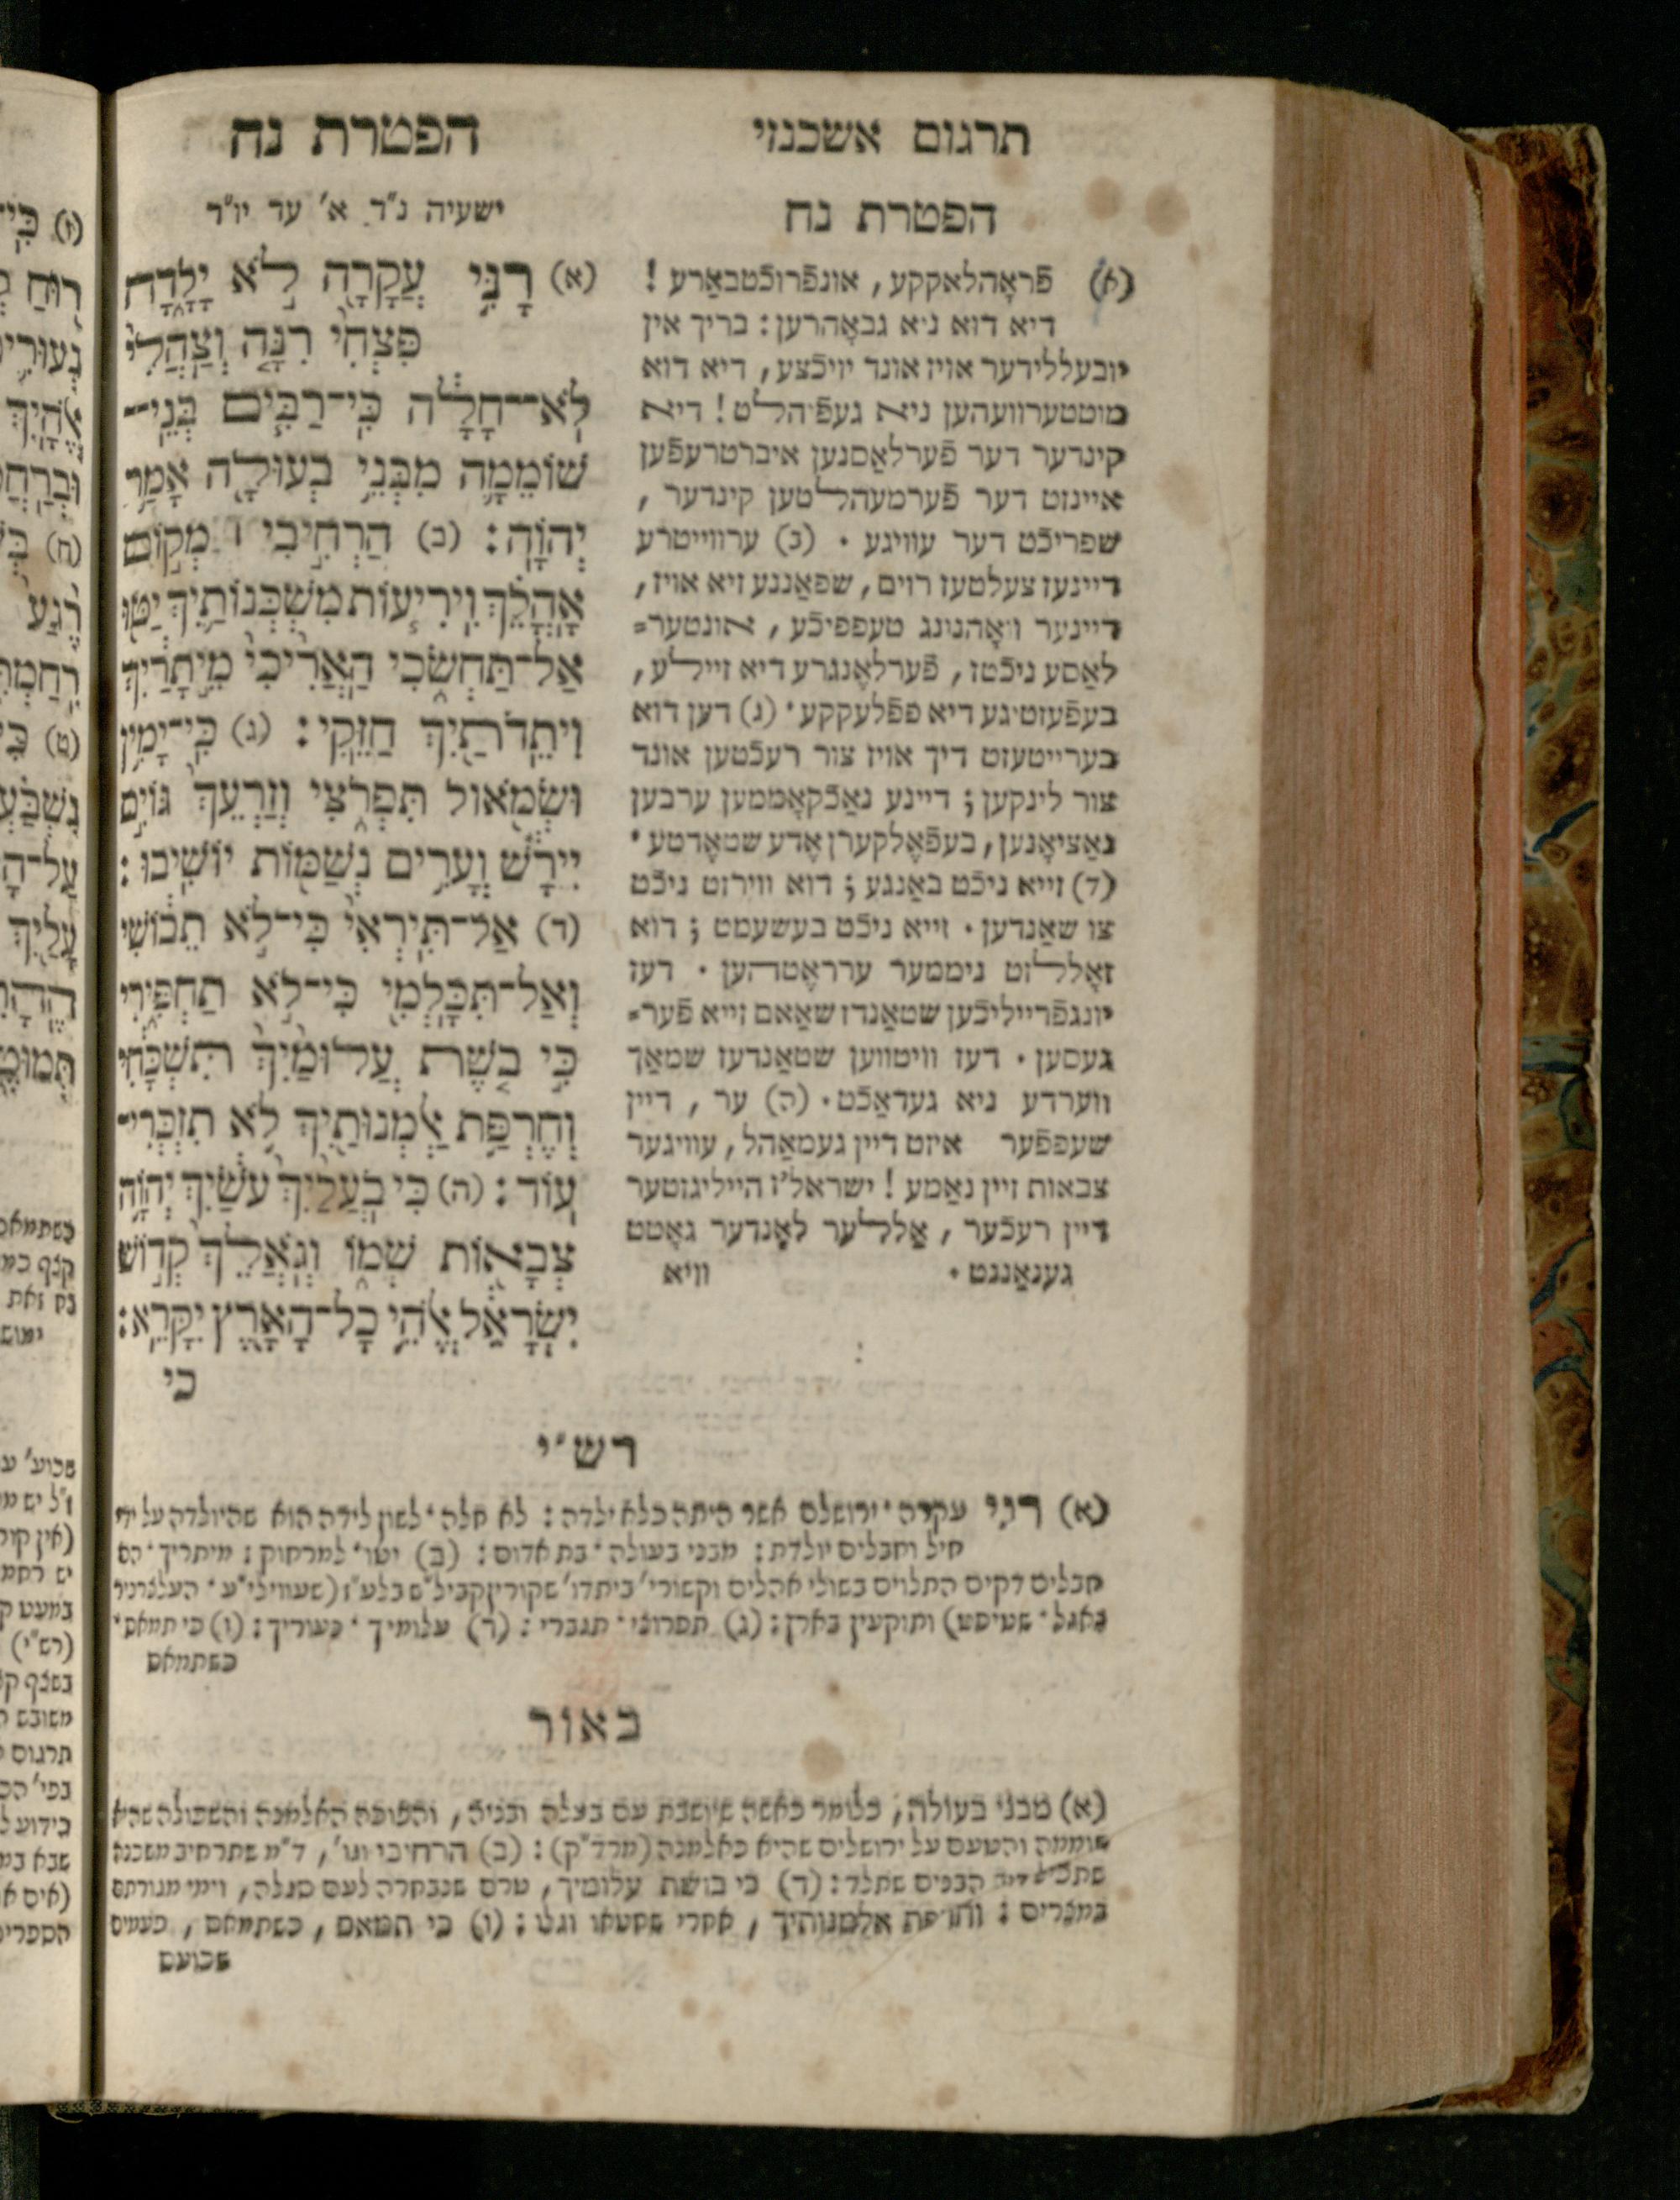 תרגום אשכנזי
הפטרת נח
הפטרת נח
(א) פֿראָהלאקקע, אונפֿרוכֿטבאַרע !
דיא דוא ניא גבאָהרען: בריך אין
יובעללידער אויז אונד יויכֿצע, דיא דוא
מוטטערוועהען ניא געפֿיהלט! דיא
קינדער דער פֿערלאַסנען איברטרעפֿען
איינזט דער פֿערמעהלטען קינדער,
שפריכֿט דער עוויגע · (ב) ערווייטרע
דיינעז צעלטעז רוים, שפאַננע זיא אויז,
דיינער וואָהנונג טעפפיכֿע, אונטער=
לאַסע ניכֿטז, פֿערלאֶנגרע דיא זיילע,
בעפֿעזטיגע דיא פפֿלעקקע · (ג) דען דוא
ברייטעזט דיך אויז צור רעכֿטען אונד
צור לינקען; דיינע נאַכֿקאָממען ערבען
נאַציאָנען, בעפֿאֶלקערן אֶדע שטאֶדטע ·
(ד) זייא ניכֿט באַנגע; דוא ווירזט ניכֿט
צו שאַנדען · זייא ניכֿט בעשעמט; דוא
זאָללזט ניממער ערראֶטהען · דעז
יונגפֿרייליכֿען שטאַנדז שאַאם זייא פֿער=
געסען · דעז וויטווען שטאַנדעז שמאַך
ווערדע ניא געדאַכֿט · (ה) ער, דיין
שעפפֿער איזט דיין געמאַהל, עוויגער
צבאות זיין נאַמע! ישראל'ז הייליגזטער
דיין רעכֿער, אַללער לאֶנדער גאָטט
גענאַננט · וויא
הפטרת נח
ישעיה נ"ד א' עד יו"ד
(א) רָנִּי עֲקָרָה לֹא יָלָדָה
פִּצְחִי רִנָּה וְצַהֲלִי
לֹא־חָלָה כִּי־רַבִּים בְּנֵי־
שׁוֹמֵמָה מִבְּנֵי בְעוּלָה אָמַר
יְהוָה: (ב) הַרְחִיבִי ׀ מְקוֹם
אָהֳלֵךְ וִירִיעוֹת מִשְׁכְּנוֹתַיִךְ יַטּוּ
אַל־תַּחְשֹׂכִי הַאֲרִיכִי מֵיתָרַיִךְ
וִיתֵדֹתַיִךְ חַזֵּקִי: (ג) כִּי־יָמִין
וּשְׂמֹאול תִּפְרֹצִי וְזַרְעֵךְ גּוֹיִם
יִירָשׁ וְעָרִים נְשַׁמּוֹת יוֹשִׁיבוּ:
(ד) אַל־תִּירְאִי כִּי־לֹא תֵבוֹשִׁי
וְאַל־תִּכָּלְמִי כִּי־לֹא תַחְפִּירִי
כִּי בֹשֶׁת עֲלוּמַיִךְ תִּשְׁכָּחִי
וְחֶרְפַּת אַלְמְנוּתַיִךְ לֹא תִזְכְּרִי־
עוֹד: (ה) כִּי בֹעֲלַיִךְ עֹשַׂיִךְ יְהוָה
צְבָאוֹת שְׁמוֹ וְגֹאֲלֵךְ קְדוֹשׁ
יִשְׂרָאֵל אֱלֹהֵי כָל־הָאָרֶץ יִקָּרֵא:
כי
רש"י
(א) רני עקרה · ירושלם אשר היתה כלא ילדה: לא חלה · לשון לידה הוא שהיולדה על ידי
חיל וחבלים יולדת: מבני בעולה · בת אדום: (ב) יטו · למרחוק: מיתריך · הם
חבלים דקים התלוים בשולי אהלים
ותוקעין בארץ: (ג) תפרוצי · תגברי: (ד) עלומיך · נעוריך: (ו) כי תמאס ·
כשתמאס
באור
(א) מבני בעולה, כלומר כאשה שיושבת עם בעלה ובניה,
שוממה והטעם על ירושלים שהיא כאלמנה (מרד"ק): (ב) הרחיבי וגו', ד"מ שתרחיב משכנה
הבנים שתלד: (ד) כי בושת עלומיך, טרם שנבחרה לעם סגלה, וימי מגורתם
במצרים: וחרפת אלמנותיך, אחרי שחטאו וגלו: (ו) כי תמאס, כשתמאס, כעמים
שכועס